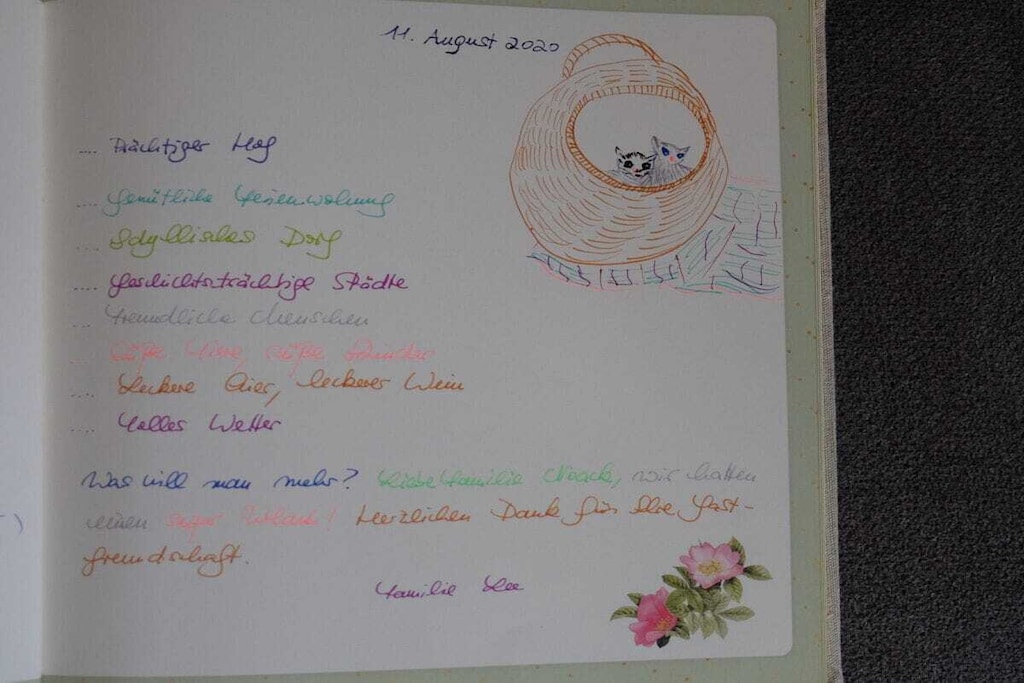 11. August 2020
.... Prächtiger Hof
.... Gemütliche Ferienwohnung
.... Idyllisches Dorf
.... Geschichtsträchtige Städte
.... Freundliche Menschen
.... Süße Tiere, süße
.... Leckere Eier, leckerer Wein
.... Tolles Wetter
Was will man mehr? Liebe Familie Noack, wir hatten
einen super Urlaub! Herzlichen Dank für Ihre Gast-
freundschaft.
Familie